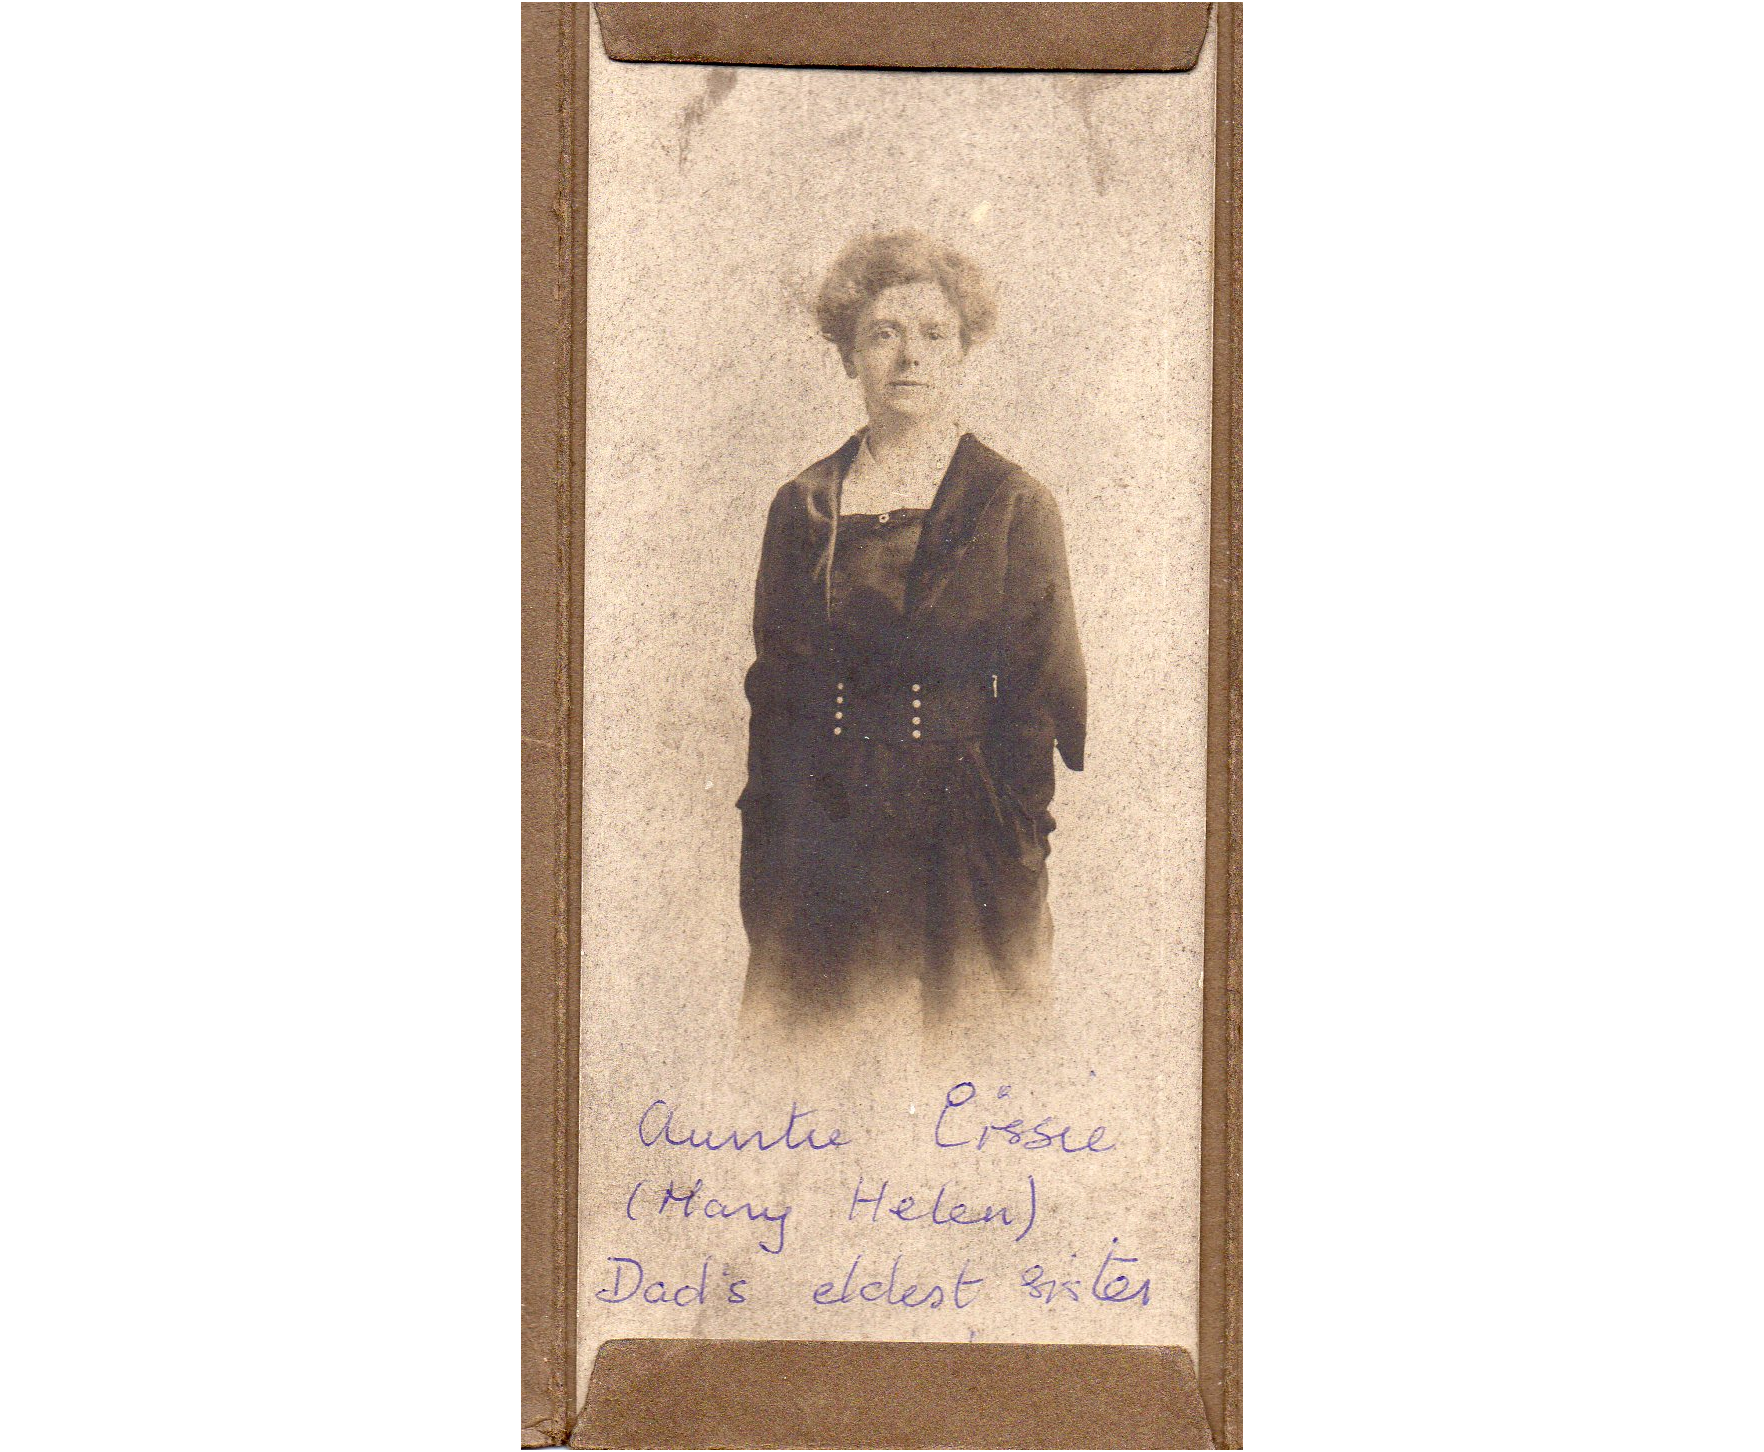 Auntie Cissie
(Mary Helen)
Dad's eldest sister